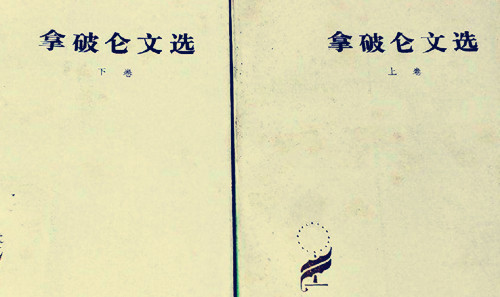 拿破仑文选
下卷
拿破仑文选
上卷